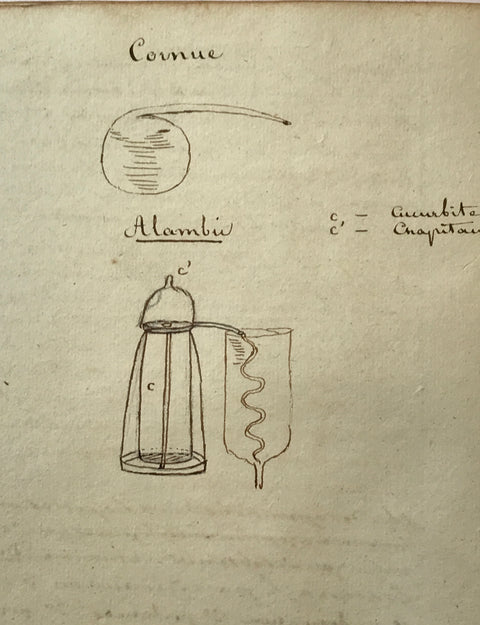 Cornue
Alambic
c - Cucurbite
c' - Chapitau
c'
c